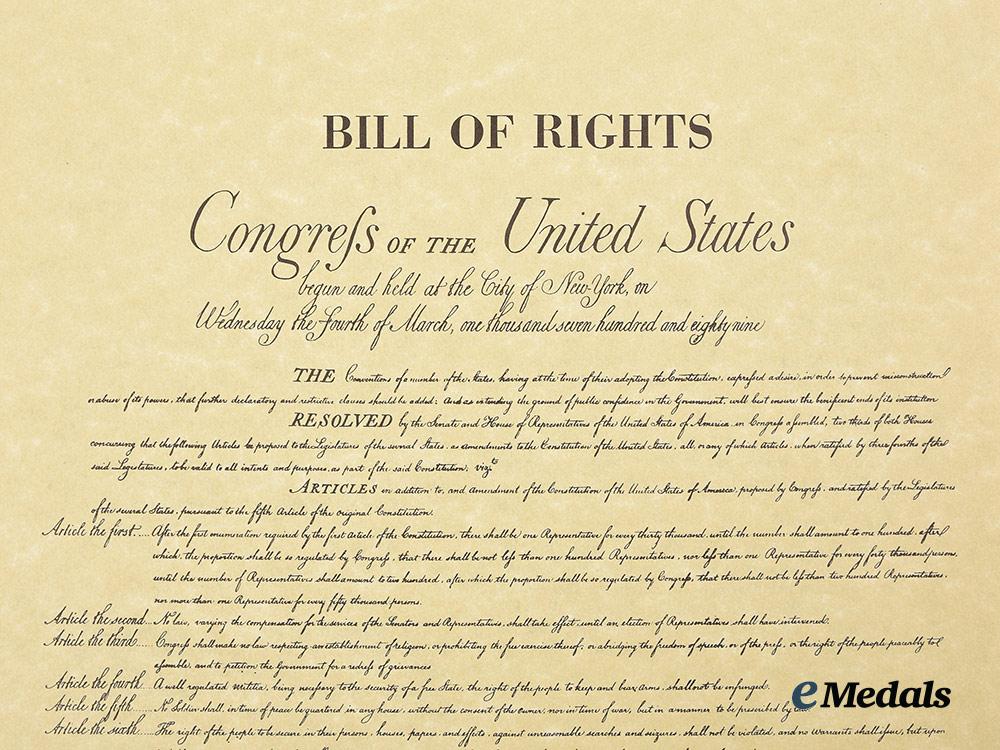 BILL OF RIGHTS
Congreſs OF THE United States
begun and held at the City of New-York, on
Wednesday the Fourth of March, one thousand seven hundred and eighty nine
THE Conventions of a number of the States, having at the time of their adopting the Constitution, expreſsed a desire, in order to prevent misconstruction
or abuse of its powers, that further declaratory and restrictive clauses should be added: And as extending the ground of public confidence in the Government, will best ensure the beneficent ends of its institution
RESOLVED by the Senate and House of Representatives of the United States of America in Congreſs aſsembled, two thirds of both Houses
concurring that the following Articles be proposed to the Legislatures of the several States, as amendments to the Constitution of the United States, all, or any of which Articles, when ratified by three fourths of the
said Legislatures, to be valid to all intents and purposes, as part of the said Constitution. vizt.
ARTICLES in addition to, and amendment of the Constitution of the United States of America, proposed by Congreſs, and ratified by the Legislatures
of the several States, pursuant to the fifth Article of the original Constitution.
Article the first.... After the first enumeration required by the first Article of the Constitution, there shall be one Representative for every thirty thousand, until the number shall amount to one hundred, after
which, the proportion shall be so regulated by Congreſs, that there shall be not leſs than one hundred Representatives, nor leſs than one Representative for every forty thousand persons,
until the number of Representatives shall amount to two hundred, after which the proportion shall be so regulated by Congreſs, that there shall not be leſs than two hundred Representatives,
nor more than one Representative for every fifty thousand persons.
Article the second... No law, varying the compensation for the services of the Senators and Representatives, shall take effect, until an election of Representatives shall have intervened.
Article the third..... Congreſs shall make no law respecting an establishment of religion, or prohibiting the free exercise thereof; or abridging the freedom of speech, or of the preſs, or the right of the people peaceably to
aſsemble, and to petition the Government for a redreſs of grievances
Article the fourth... A well regulated militia, being neceſsary to the security of a free State, the right of the people to keep and bear arms, shall not be infringed.
Article the fifth..... No Soldier shall, in time of peace be quartered in any house, without the consent of the owner, nor in time of war, but in a manner to be prescribed by
Article the sixth..... The right of the people to be secure in their persons, houses, papers, and effects, against unreasonable searches and seizures, shall not be violated, and no warrants shall iſsue, but upon
eMedals